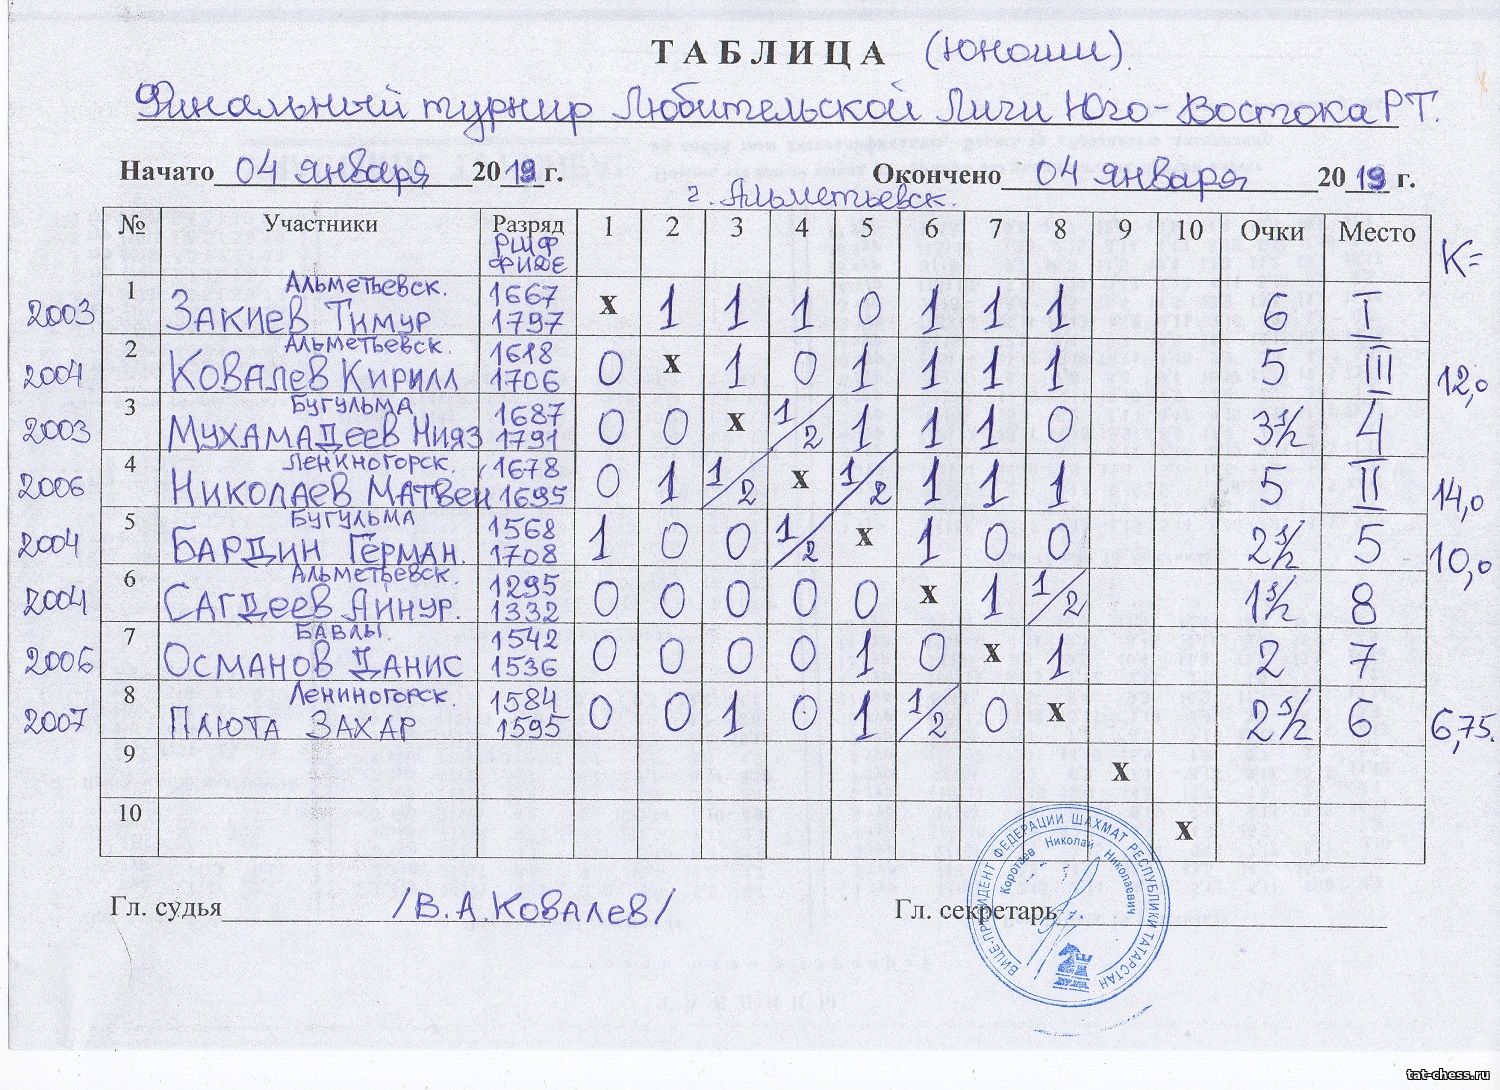 ТАБЛИЦА (юноши).
Финальный турнир Любительской Лиги Юго-Востока РТ.
Начато 04 января 2019 г. Окончено 04 января 2019 г.
г. Альметьевск.
№ Участники Разряд РШФ ФИДЕ 1 2 3 4 5 6 7 8 9 10 Очки Место К=
2003 1 Альметьевск. Закиев Тимур 1667 1797 x 1 1 1 0 1 1 1 6 I
2004 2 Альметьевск. Ковалев Кирилл 1618 1706 0 x 1 0 1 1 1 1 5 III 12,0
2003 3 Бугульма Мухамадеев Нияз 1687 1791 0 0 x 1/2 1 1 1 0 3 1/2 4
2006 4 Лениногорск. Николаев Матвей 1678 1695 0 1 1/2 x 1/2 1 1 1 5 II 14,0
2004 5 Бугульма Бардин Герман. 1568 1708 1 0 0 1/2 x 1 0 0 2 1/2 5 10,0
2004 6 Альметьевск. Сагдеев Айнур. 1295 1332 0 0 0 0 0 x 1 1/2 1 1/2 8
2006 7 Бавлы. Османов Данис 1542 1536 0 0 0 0 1 0 x 1 2 7
2007 8 Лениногорск. Плюта Захар 1584 1595 0 0 1 0 1 1/2 0 x 2 1/2 6 6,75.
9 x
10 x
Гл. судья /В.А.Ковалев/ Гл. секретарь
ВИЦЕ-ПРЕЗИДЕНТ ФЕДЕРАЦИИ ШАХМАТ РЕСПУБЛИКИ ТАТАРСТАН
Коротаев Николай Николаевич
tat-chess.ru